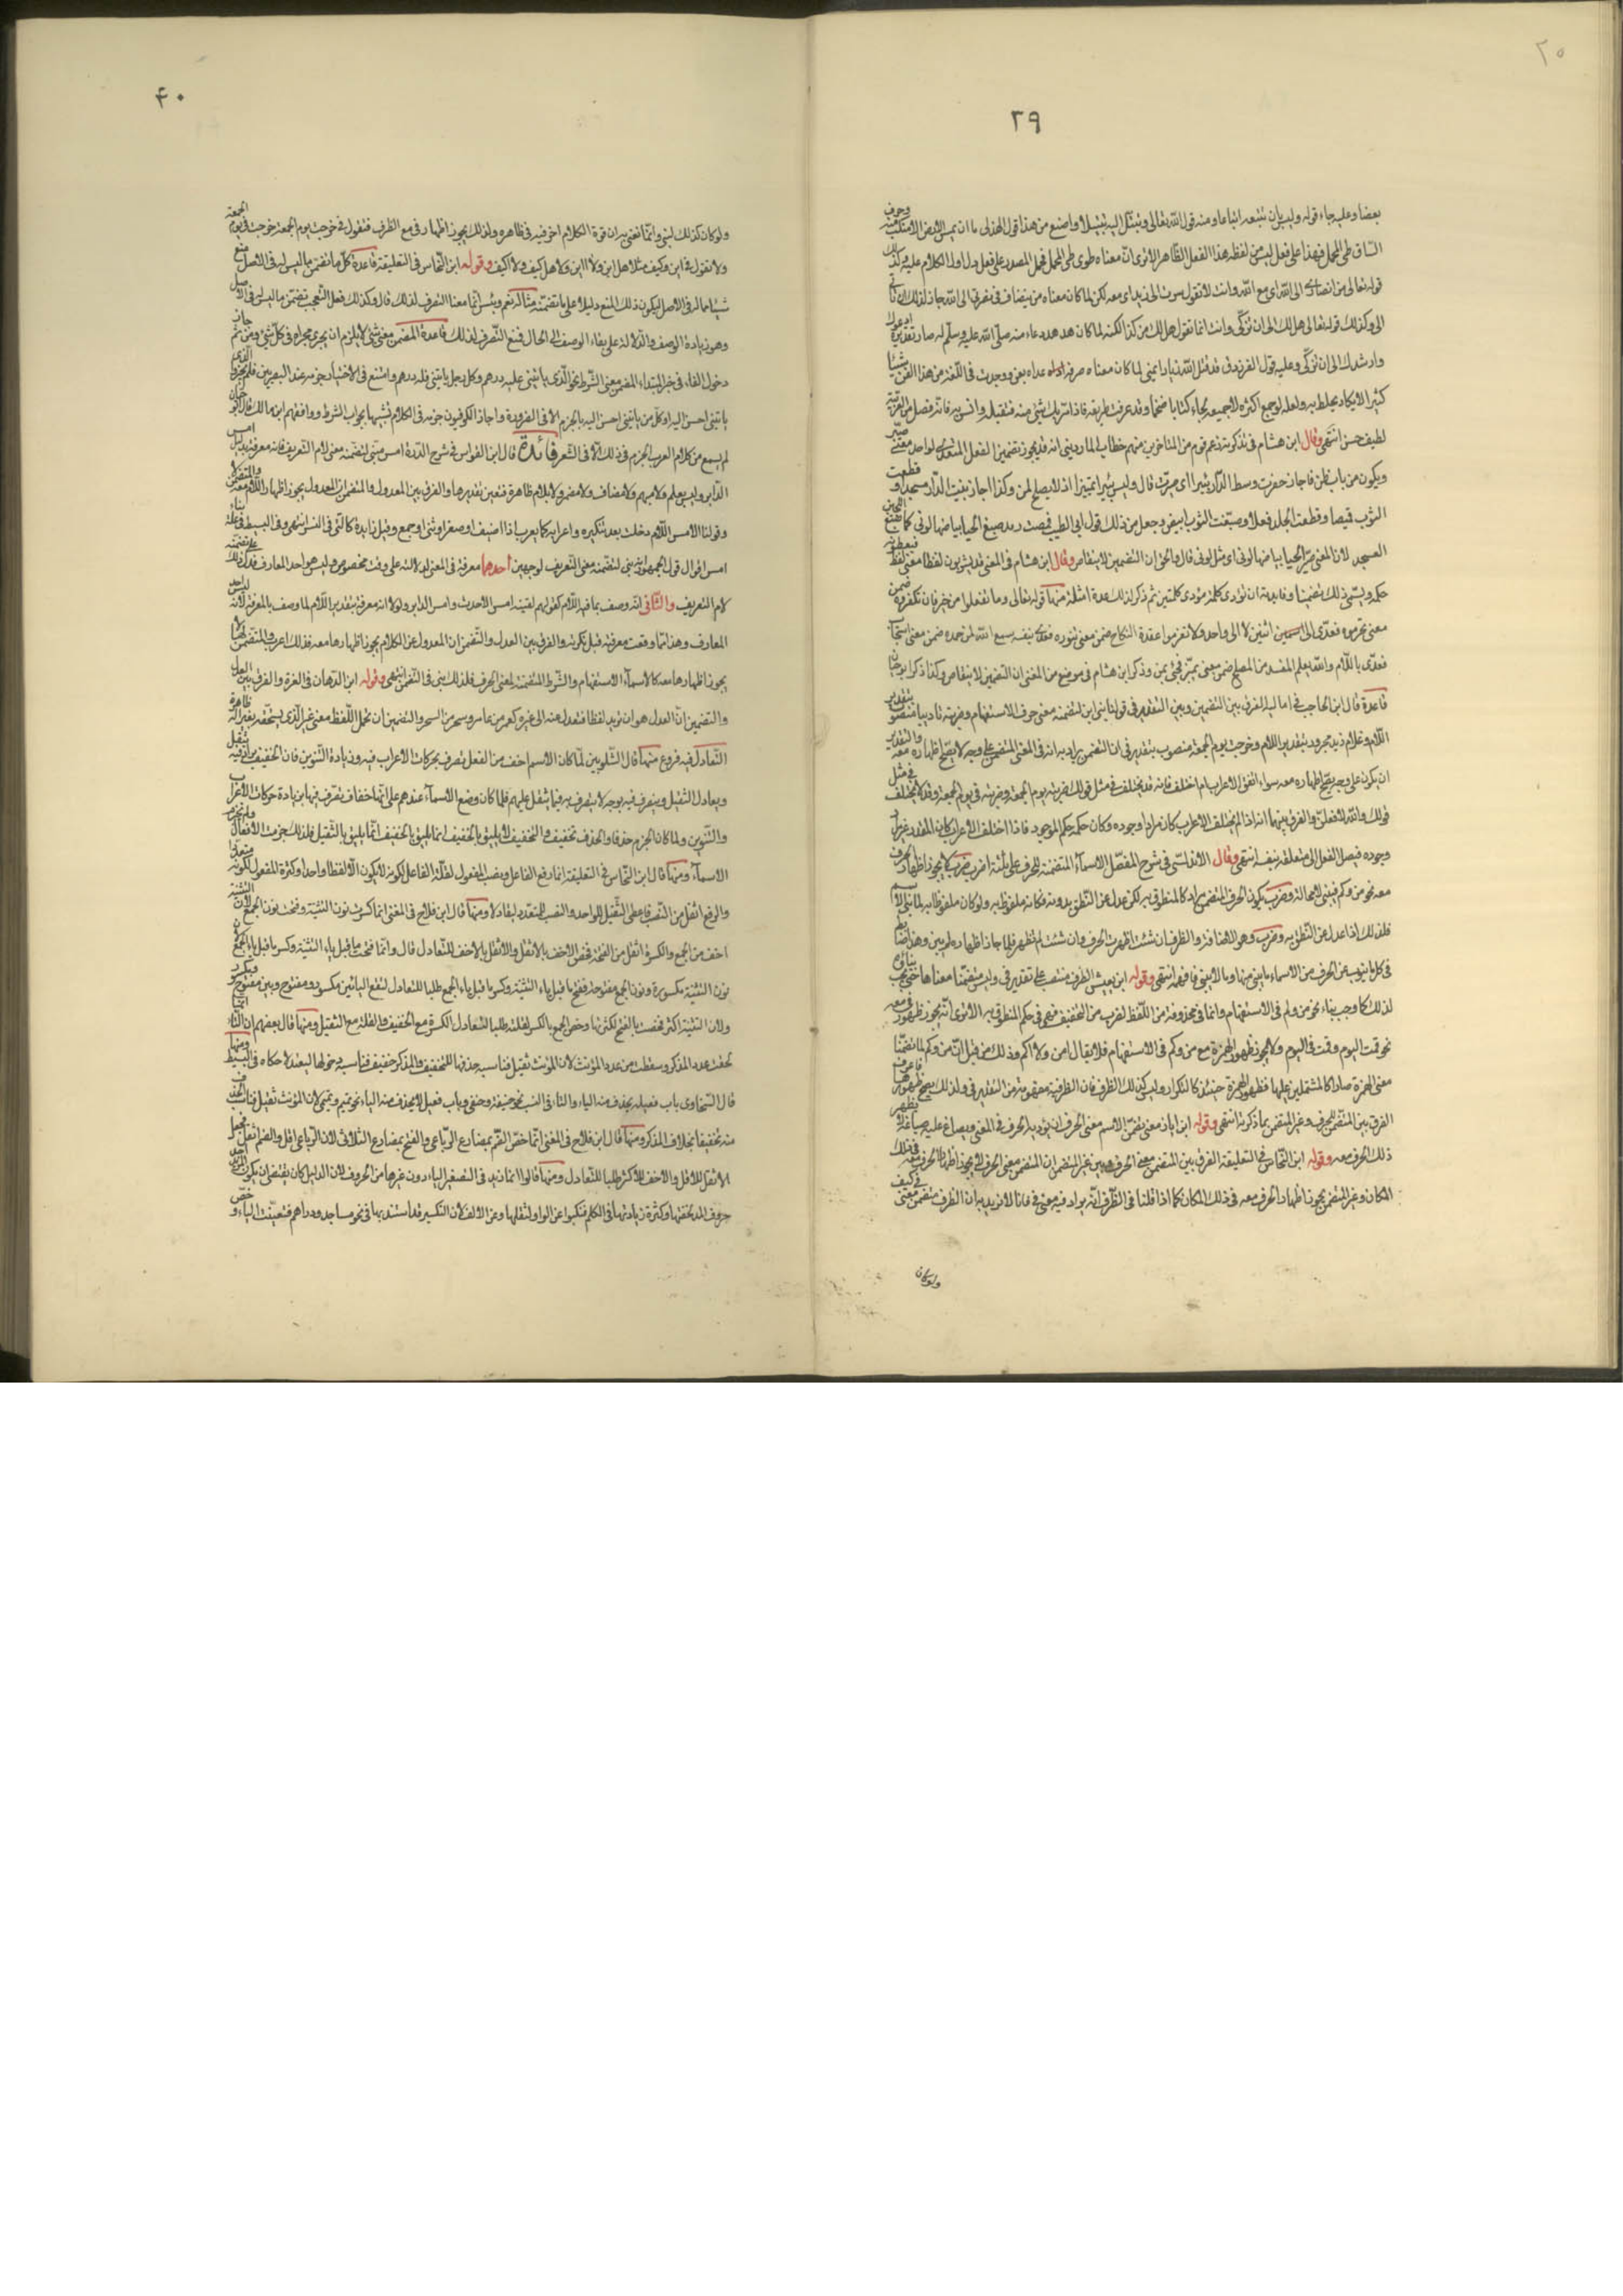 ٢٠
٢٩
بعضا وعليه جاء قوله وليس بان تتبعه اتباعا ومنه قول الله تعالى وتبتل اليه تبتيلا واصنع من هذا قول الهذلى ما ان يمس الارض الا منكب منه وحرف
الساق طى المحمل فهذا على فعل ليس من لفظه هذا الفعل الظاهر الا ترى ان معناه طوى طى المحمل فحمل المصدر على فعل دل اول الكلام عليه وكذلك
قوله تعالى من انصارى الى الله اى مع الله وانت لا تقول سرت الى زيد اى معه لكن لما كان معناه من ينضاف فى نصرتى الى الله جاز لذلك ان تاتى
الى وكذلك قوله تعالى هل لك الى ان تزكى وانت انما تقول هل لك من كذا لكنه لما كان هذا دعاء منه صلى الله عليه وسلم له صار تقديره ادعوك
وارشدك الى ان تزكى وعليه قول الفرزدق قد قتل الله زيادا عنى لما كان معناه صرفه عداه بعن ووجدت فى اللغة من هذا الفن شيئا
كثيرا لا يكاد يحاط به ولعله لو جمع اكثره لا جميعه لجاء كتابا ضخما وقد عرفت طريقه فاذا مر بك شئ منه فتقبله وانس به فانه فصل من العربية
لطيف حسن انتهى وقال ابن هشام فى تذكرته زعم قوم من المتاخرين منهم خطاب الماردينى انه قد يجوز تضمين الفعل المتعدى لواحد معنى صير
ويكون من باب ظن فاجاز حفرت وسط الدار بئرا اى صيرت قال وليس بئرا تمييزا اذ لا يصلح لمن وكذا اجاز بنيت الدار مسجدا وقطعت
الثوب قميصا وقطعت الجلد نعلا وصبغت الثوب ابيض وجعل من ذلك قول ابى الطيب فمضت وقد صبغ الحياء بياضها لونى كما صبغ اللجين
العسجد لان المعنى صير الحياء بياضها لونى اى مثل لونى قال والحق ان التضمين لا ينقاص وقال ابن هشام فى المغنى قد يشربون لفظا معنى لفظ فيعطونه
حكمه ويسمى ذلك تضمينا وفائدته ان تؤدى كلمة مؤدى كلمتين ثم ذكر لذلك عدة امثلة منها قوله تعالى وما تفعلوا من خير فلن تكفروه ضمن
معنى تحرموه فعدى الى اثنين لا الى واحد ولا تعزموا عقدة النكاح ضمن معنى تنووه فعدى بنفسه سمع الله لمن حمده ضمن معنى استجاب
فعدى باللام والله يعلم المفسد من المصلح ضمن معنى يميز فجئ بمن وذكر ابن هشام فى موضع من المغنى ان التضمين لا ينقاس وكذا ذكر ابو حيان
قاعدة قال ابن الحاجب فى اماليه الفرق بين التضمين وبين التقدير فى قولنا بنى اين لتضمنه معنى حرف الاستفهام وضربته تاديبا منصوب بتقدير
اللام وغلام زيد مجرور بتقدير اللام وخرجت يوم الجمعة منصوب بتقدير فى ان التضمن يراد به انه فى المعنى المتضمن على وجه لا يصح اظهاره معه والتقدير
ان يكون على وجه يصح اظهاره معه سواء اتفق الاعراب ام اختلف فانه قد يختلف فى مثل قولك ضربته يوم الجمعة وضربته فى يوم الجمعة وقد لا يختلف فى مثل
قولك والله لافعلن والفرق بينهما انه اذا لم يختلف الاعراب كان مرادا وجوده وكان حكمه حكم الموجود فاذا اختلف الاعراب كان المقدر غير مراد
وجوده فيصل الفعل الى متعلقه بنفسه انتهى وقال الاندلسى فى شرح المفصل الاسماء المتضمنة للحرف على ثلاثة اضرب ضرب لا يجوز اظهار الحرف
معه نحو من وكم فيبنى لا محالة وضرب يكون الحرف المتضمن مرادا كالمنطوق به لكن عدل عن النطق به فكانه ملفوظ به ولو كان ملفوظا به لما بنى الاسم
فكذلك اذا عدل عن النطق به وضرب وهو الاضافة والظرف ان شئت اظهرت الحرف وان شئت لم تظهر فلما جاز اظهاره لم يبن وهذا ضابط
فى كل ما ينوب عن الحرف من الاسماء ما يبنى منها وما لا يبنى فافهمه انتهى وقوله ابن يعيش الظرف منتصب على تقدير فى وليس متضمنا معناها حتى يجب بناؤه
لذلك كما وجب بناء نحو من وكم فى الاستفهام وانما فى محذوفة من اللفظ لضرب من التخفيف فهى فى حكم المنطوق به الا ترى انه يجوز ظهور فى معه
نحو قمت اليوم وقمت فى اليوم ولا يجوز ظهور الهمزة مع من وكم فى الاستفهام فلا يقال امن ولا اكم وذلك من قبل ان من وكم لما تضمنا
معنى الهمزة صارا كالمشتملين عليها فظهور الهمزة حينئذ كالتكرار وليس كذلك الظرف فان الظرفية مفهومة من التقدير فى ولذلك يصح ظهورها فاعرف
الفرق بين المتضمن للحرف وغير المتضمن بما ذكرته انتهى وقوله ابن اياز معنى تضمن الاسم معنى الحرف ان يؤديه الحرف فى المعنى ويصاغ عليه صياغة لا يظهر
ذلك الحرف معه وقوله ابن النحاس فى التعليقة الفرق بين المتضمن معنى الحرف وبين غير المتضمن ان المتضمن معنى الحرف لا يجوز اظهار الحرف معه فى ذلك
المكان وغير المتضمن يجوز اظهار الحرف معه فى ذلك المكان كما اذا قلنا فى الظرف انه يراد فيه معنى فى فانا لا نريد به ان الظرف متضمن معنى فى كيف
ولو كان
۴۰
ولو كان كذلك لبنى وانما نعنى به ان قوة الكلام اخر فيه فى ظاهره ولذلك يجوز اظهار فى مع الظرف فتقول فى خرجت يوم الجمعة خرجت فى يوم الجمعة
ولا تقول فى اين وكيف مثلا هل اين ولا اين ولا هل كيف ولا اكيف وقوله ابن النحاس فى التعليقة قاعدة كل ما تضمن ما ليس له فى الاصل منع
شيئا مما له فى الاصل ليكون ذلك المنع دليلا على ما تضمنه مثاله نعم وبئس انما معنا التصرف لذلك قال وكذلك فعل التعجب تضمن ما ليس فى الاصل
وهو زيادة الوصف والدلالة على بقاء الوصف الى الحال فمنع التصرف لذلك قاعدة المتضمن معنى شئ لا يلزم ان يجرى مجراه فى كل شئ ومن ثم جاز
دخول الفاء فى خبر المبتداء المضمن معنى الشرط نحو الذى ياتينى فله درهم وكل رجل ياتينى فله درهم وامتنع فى الاختيار جزمه عند البصريين فلم يجيزوا الذى
ياتينى احسن اليه او كل من ياتينى احسن اليه بالجزم الا فى الضرورة واجاز الكوفيون جزمه فى الكلام تشبيها بجواب الشرط ووافقهم ابن مالك قال ابو حيان
لم يسمع من كلام العرب الجزم فى ذلك الا فى الشعر فائدة قال ابن القواس فى شرح الدرة امس مبنى لتضمنه معنى لام التعريف فانه معرفة بدليل امس
الدابر وليس بعلم ولا مبهم ولا مضاف ولا مضمر ولا بلام ظاهرة فتعين تقديرها والفرق بين المعدول والمتضمن ان المعدول يجوز اظهار اللام معه والمتضمن لا
وقولنا الامس اللام دخلت بعد تنكيره واعرابه كما يعرب اذا اضيف او صغر او ثنى او جمع وقيل زايدة كالتى فى النسر انتهى وفى البسيط فى علة بناء
امس اقوال قول الجمهور انه بنى لتضمنه معنى التعريف لوجهين احدهما معرفة فى المعنى لدلالته على وقت مخصوص وليس هو احد المعارف فدل ذلك على تضمنه
لام التعريف والثانى انه وصف بما فيه اللام كقولهم لقيته امس الاحدث وامس الدابر ولولا انه معرفة بتقدير اللام لما وصف بالمعرفة لانه ليس احد
المعارف وهذا مما وقعت معرفته قبل نكرته والفرق بين العدل والتضمن ان المعدول عن الكلام يجوز اظهارها معه فلذلك اعرب والمتضمن لها لا
يجوز اظهارها معه كالاسماء الاستفهام والشرط المتضمنة لمعنى الحرف فلذلك بنى فى التضمن انتهى وقوله ابن الدهان فى الغرة والفرق بين العدل
والتضمين ان العدل هو ان تريد لفظا فتعدل عنه الى غيره كعمر من عامر وسحر من السحر والتضمين ان تحمل اللفظ معنى غير الذى يستحقه بغير آلة ظاهرة
التعادل فيه فروع منها قال الشلوبين لما كان الاسم اخف من الفعل تصرف بحركات الاعراب فيه وزيادة التنوين فان الخفيف يزاد فيه ليثقل
ويعادل الثقيل ويتصرف فيه بوجه لا يتصرف به فيما يثقل عليهم فلما كان وضع الاسماء عندهم على انها خفاف تصرف فيها بزيادة حركات الاعراب
والتنوين ولما كان الجزم حذفا والحذف تخفيف والتخفيف لا يليق بالخفيف انما يليق بالثقيل فلذلك جزمت الافعال ولم تجزم
الاسماء ومنها قال ابن النحاس فى التعليقة انما رفع الفاعل ونصب المفعول لقلة الفاعل لكونه لا يكون الا لفظا واحدا وكثرة المفعول لكونه متعددا
والرفع اثقل من النصب فاعطى الثقيل للواحد والنصب للمتعدد ليتعادلا ومنها قال ابن فلاح فى المغنى انما كسرت نون التثنية وفتحت نون الجمع لان التثنية
اخف من الجمع والكسرة اثقل من الفتحة فخص الاخف بالاثقل والاثقل بالاخف للتعادل قال وانما فتحت ما قبل ياء التثنية وكسر ما قبل ياء الجمع لان
نون التثنية مكسورة ونون الجمع مفتوحة ففتح ما قبل ياء التثنية وكسر ما قبل ياء الجمع طلبا للتعادل لتقع اليائين مكسور ومفتوح وبين مفتوح ومكسور
ولان التثنية اكثر فخصت بالفتح لكثرتها وخص الجمع بالكسر لقلته طلبا للتعادل الكسرة مع الخفيف والقلة مع الثقيل ومنها قال بعضهم ان التاء انما
لحقت عدد المذكر وسقطت من عدد المؤنث لان المؤنث ثقيل فناسبه حذفها للتخفيف والمذكر خفيف فناسبه دخولها ليعتدلا حكاه فى البسيط ومنها
قال السخاوى باب فعيلة يحذف منه الياء والتاء فى النسب نحو حنيفة وحنفى وباب فعيل لا يحذف منه الياء نحو تميم وتميمى لان المؤنث ثقيل فناسب الحذف
منه تخفيفا بخلاف المذكر ومنها قال ابن فلاح فى المغنى انما خص الضم بمضارع الرباعى والفتح بمضارع الثلاثى لان الرباعى اقل والضم اثقل فجعل
الاثقل للاقل والاخف للاكثر طلبا للتعادل ومنها قالوا انما زيد فى التصغير الياء دون غيرها من الحروف لان الدليل كان يقتضى ان يكون المزيد احد
حروف المد لخفتها وكثرة زيادتها فى الكلم فنكبوا عن الواو لثقلها وعن الالف لان التكسير قد استبد بها فى نحو مساجد ودراهم فتعينت الياء وخص